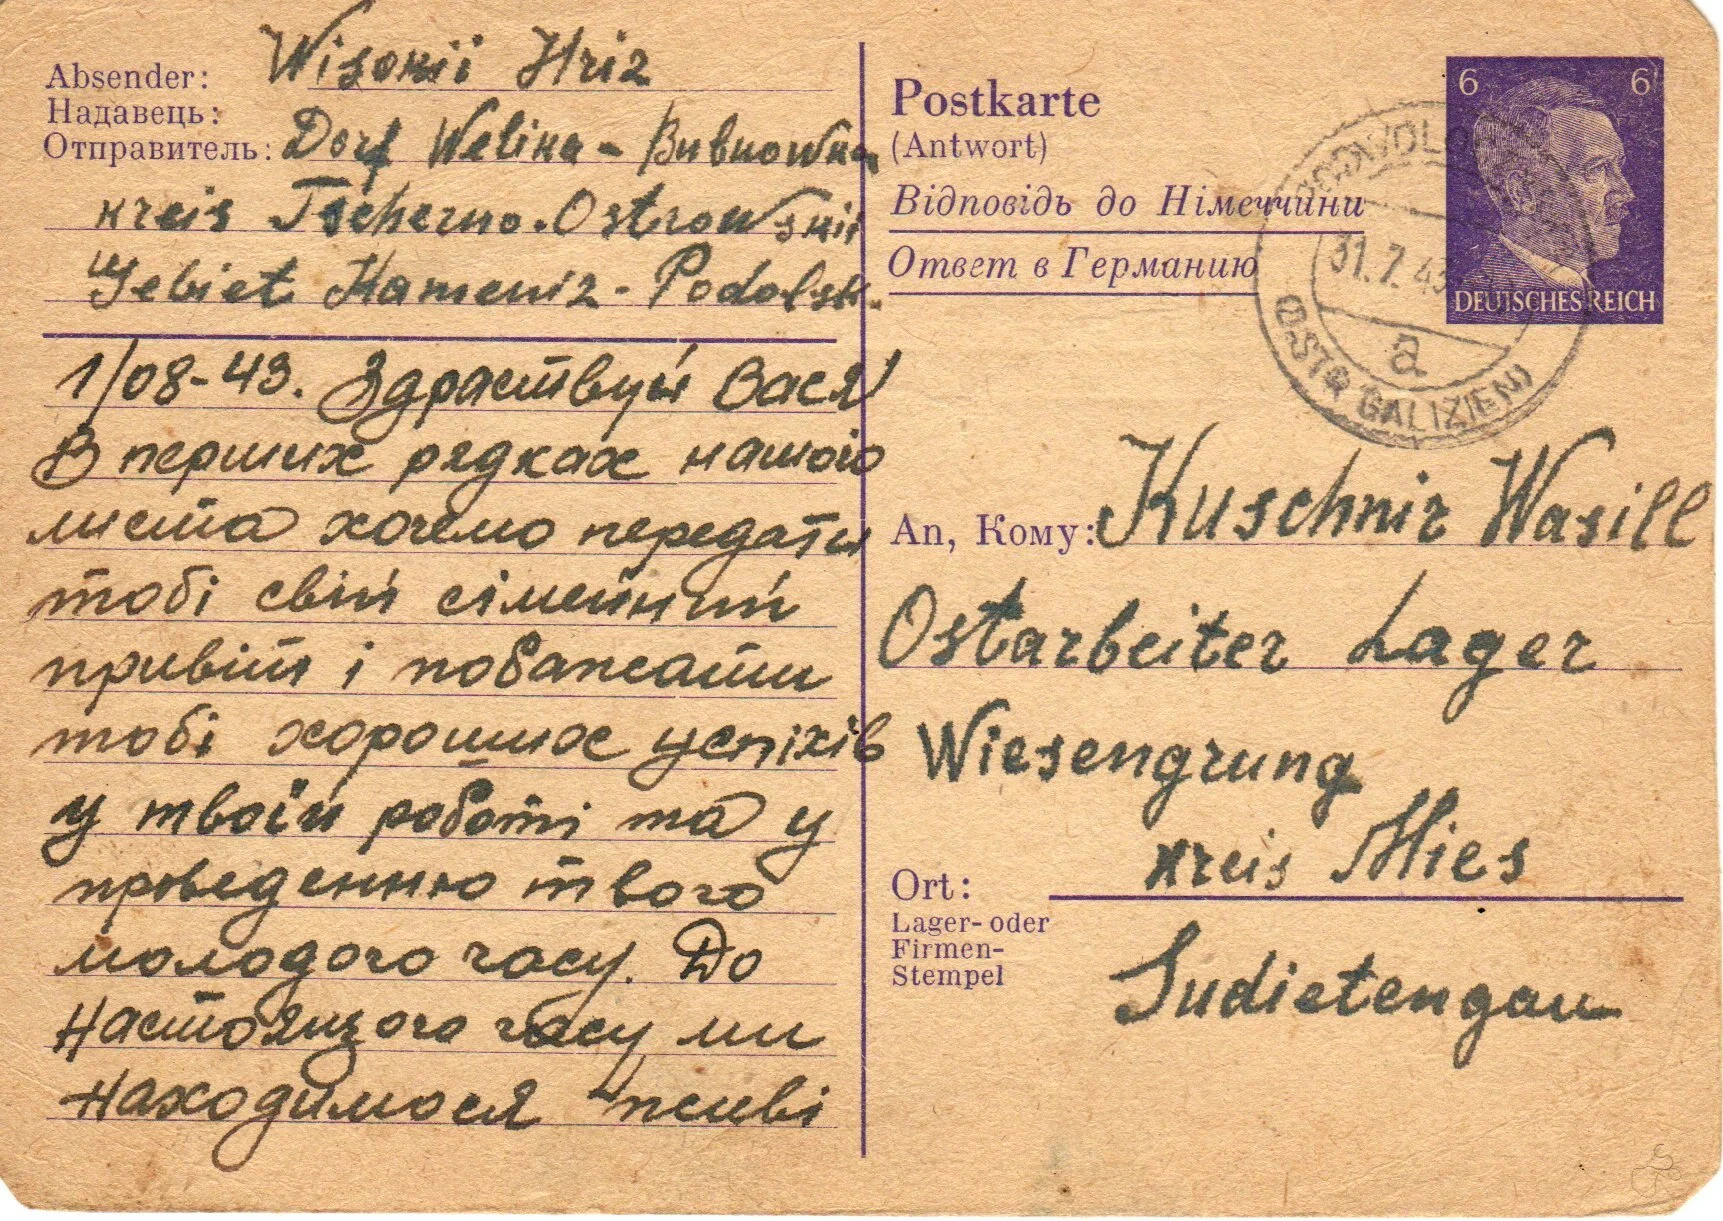 Absender:
Надавець:
Отправитель:
Wisokii Hriz
Dorf Welika-Bubnowka
kreis Tscherno-Ostrowskii
Gebiet Kameniz-Podolsk.
1/08-43. Здраствуй Вася
В перших рядках нашого
листа хочемо передати
тобі свій сімейний
привіт і побажати
тобі хороших успіхів
у твоїй роботі та у
проведенню твого
молодого часу. До
настоящого часу ми
находимося живі
Postkarte
(Antwort)
Відповідь до Німеччини
Ответ в Германию
6 6
DEUTSCHES REICH
31.7.43
a
(OSTG GALIZIEN)
An, Кому: Kuschnir Wasill
Ostarbeiter Lager
Wiesengrung
kreis Mies
Ort:
Lager- oder
Firmen-
Stempel
Sudietengau